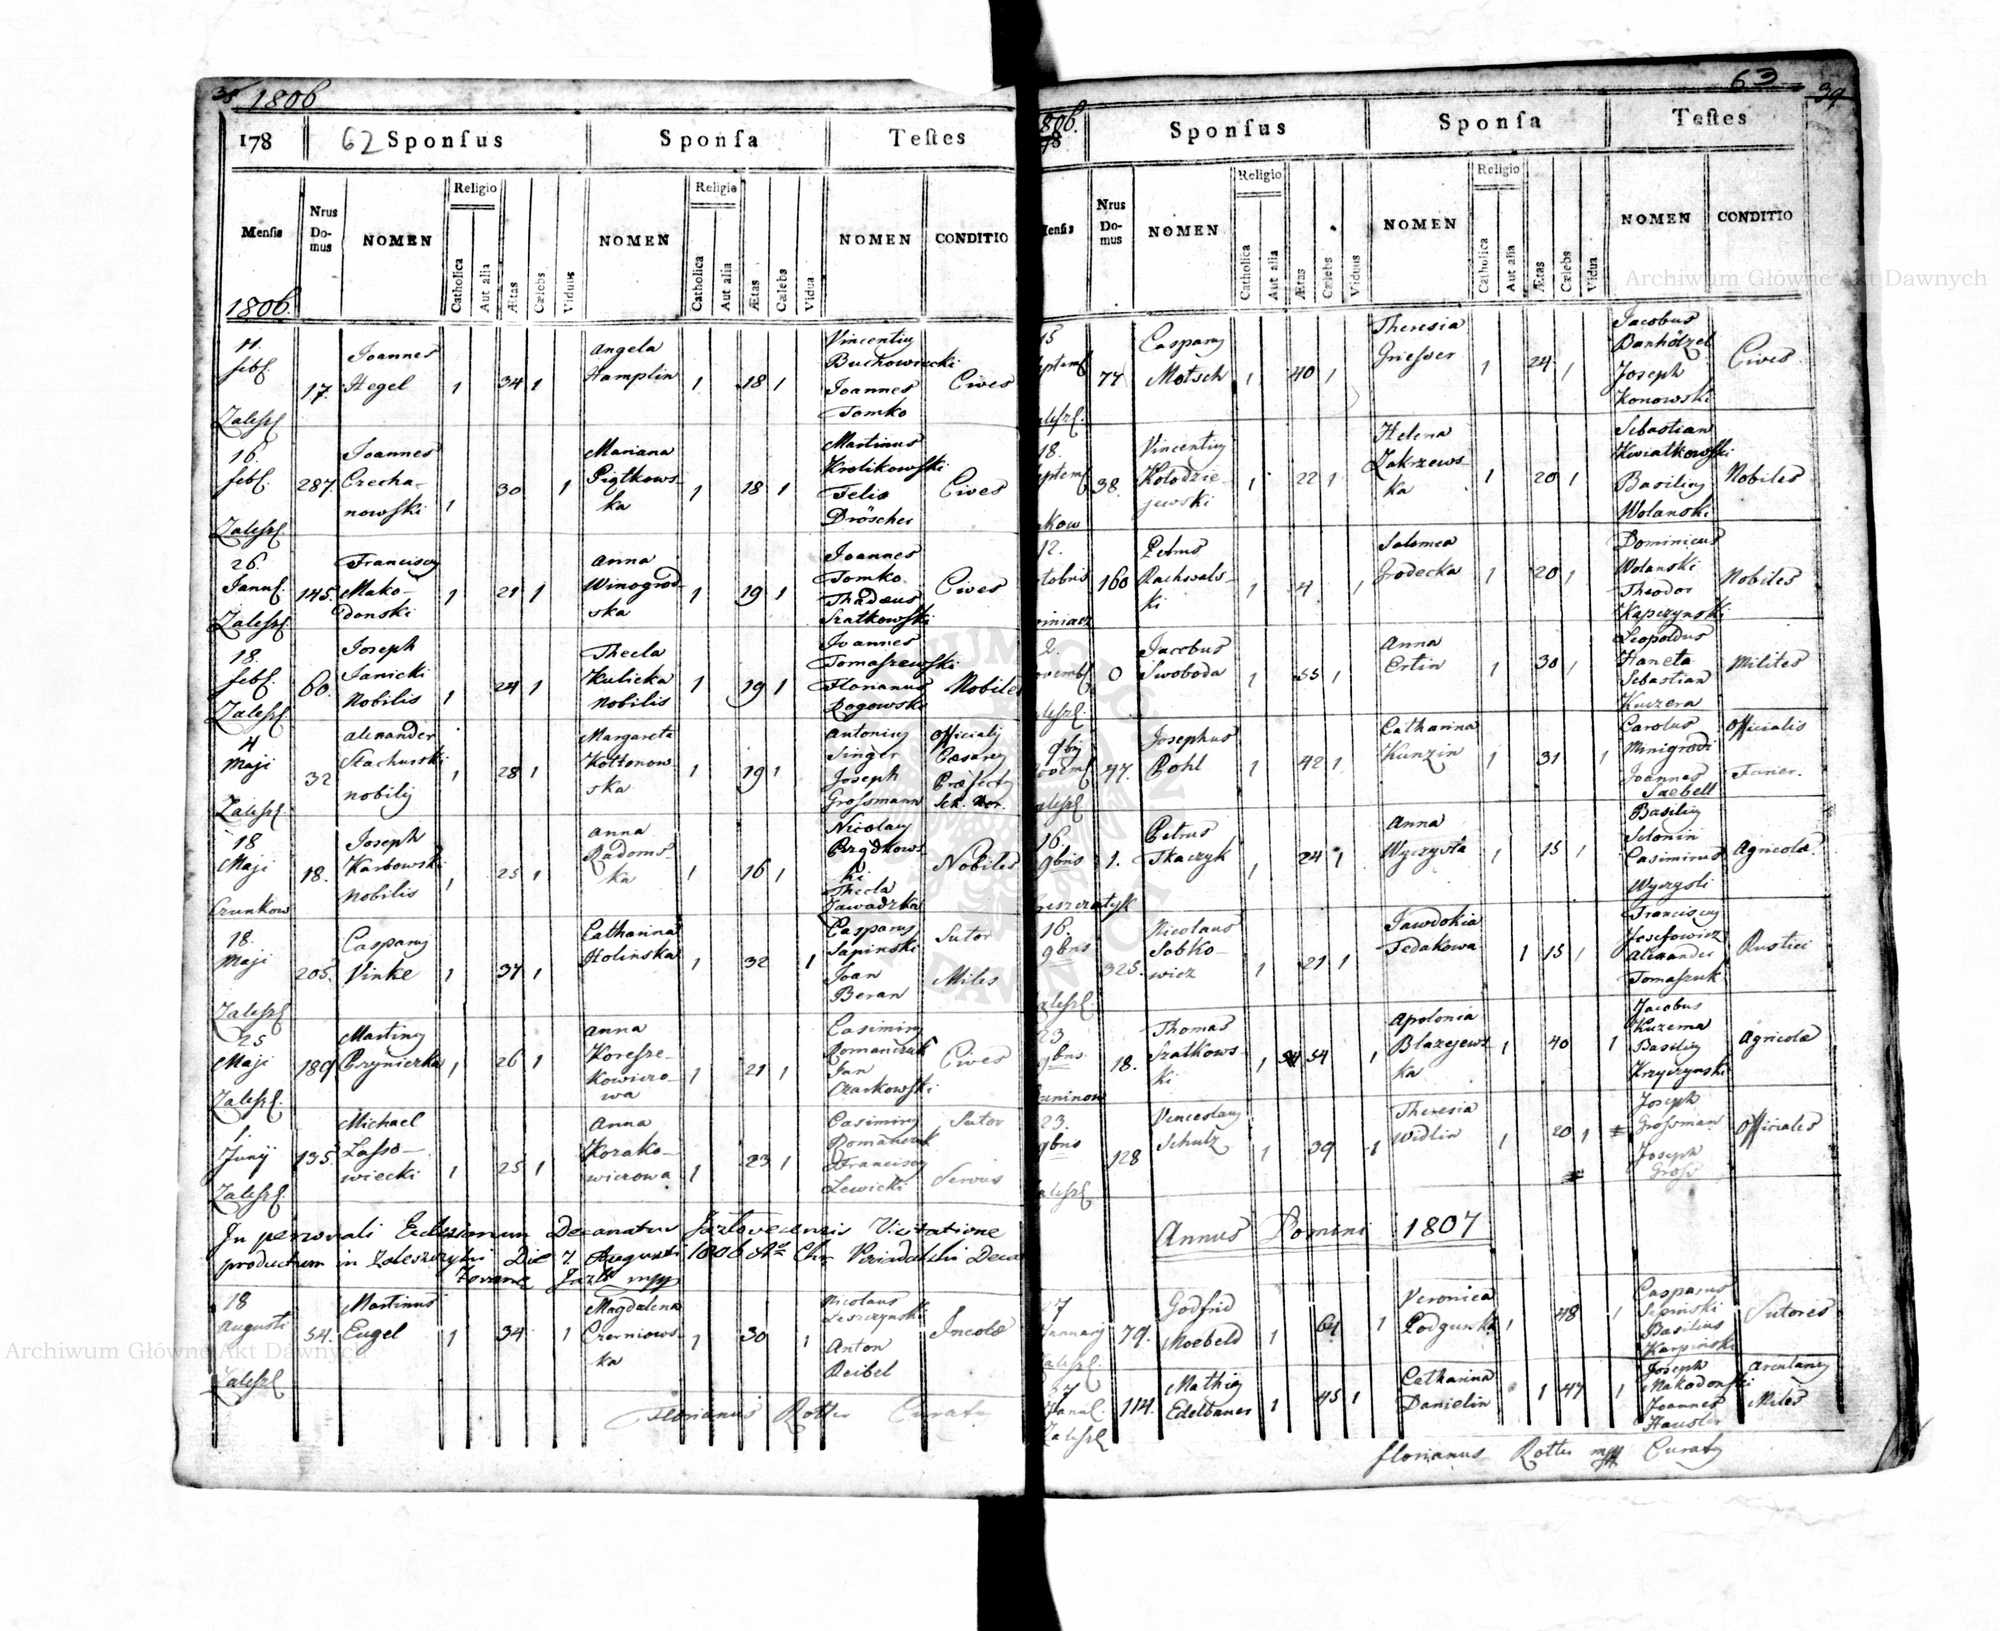 38 1806
178 62 Sponsus Sponsa Testes
Mensis Nrus Domus NOMEN Religio Catholica Aut alia Ætas Cælebs Viduus NOMEN Religio Catholica Aut alia Ætas Cælebs Vidua NOMEN CONDITIO
1806.
11. febr. Zaleszl. 17. Joannes Hegel 1 34 1 Angela Hamplin 1 18 1 Vincentius Buchowiecki Joannes Tomko Cives
16. febr. Zaleszl. 287. Joannes Czechanowski 1 30 1 Mariana Piątkowska 1 18 1 Martinus Krolikowski Felix Dröscher Cives
26. Zaleszl. 145. Franciscus Makodonski 1 21 1 Anna Winogrodska 1 19 1 Joannes Tomko Thadæus Szatkowski Cives
18. febr. Zaleszl. 60. Joseph Janicki Nobilis 1 24 1 Thecla Kulicka nobilis 1 19 1 Joannes Tomaszewski Florianus Rogowski Nobiles
4 Maji Zaleszl. 32 Alexander Stachurski nobilis 1 28 1 Margareta Kottonowska 1 19 1 Antonius Singer Joseph Grossmann Officialis Cæsareus Præfectus Sch. Nor.
18 Maji 18. Joseph Karbowski Nobilis 1 25 1 Anna Radomska 1 16 1 Nicolaus Thecla Zawadzka Nobiles
18. Maji Zaleszl. 205. Casparus Vinke 1 37 1 Catharina Holinska 1 32 1 Casparus Sapinski Joan Beran Sutor Miles
25 Maji Zaleszl. 189 Martinus 1 26 1 Anna 1 21 1 Casimirus Romanczuk Jan Czarkowski Cives
1. Junij Zaleszl. 135. Michael Lassowiecki 1 25 1 Anna Korakowiczowa 1 23 1 Casimirus Franciscus Lewicki Sutor Servus
In personali Ecclesiarum Decanatus Jazlovecensis Visitatione
productum in Zaleszczyki Die 7. Augusti 1806
18 Augusti Zaleszl. 54. Martinus Engel 1 34 1 Magdalena Czerniowska 1 30 1 Nicolaus Leszczynski Anton Reibel Incolæ
Florianus Rotter Curatus
63 39
806.
Sponsus Sponsa Testes
Mensis Nrus Domus NOMEN Religio Catholica Aut alia Ætas Cælebs Viduus NOMEN Religio Catholica Aut alia Ætas Cælebs Vidua NOMEN CONDITIO
15 77 Casparus Motsch 1 40 1 Theresia Griesser 1 24 1 Jacobus Banhölzel Joseph Konowski Cives
18. 38. Vincentius Kolodziejewski 1 22 1 Helena Zakrzewska 1 20 1 Sebastian Kwiatkowski Basilius Wolanski Nobiles
12. 160 Petrus Rachwalski 1 1 Salomea Grodecka 1 20 1 Dominicus Wolanski Theodor Kapczynski Nobiles
2. 0 Jacobus Swoboda 1 55 1 Anna Ertin 1 30 1 Leopoldus Haneta Sebastian Kuczera Milites
47. Josephus Pohl 1 42 1 Catharina Kunzin 1 31 1 Carolus Joannes Officialis Furier.
16. 9bris 1. Petrus Tkaczyk 1 24 1 Anna 1 15 1 Basilius Casimirus Agricolæ
16. 9bris 325. Nicolaus Sobkowicz 1 21 1 Fawdokia Fedakowa 1 15 1 Franciscus Josefowicz Alexander Tomaszuk Rustici
23 9bris 18. Thomas Szatkowski 1 54 1 Apolonia Blazejewska 1 40 1 Jacobus Kuzema Basilius Krzyczynski Agricolæ
23. 9bris 128 Venceslaus Schulz 1 39 1 Theresia Widlin 1 20 1 Joseph Grossman Joseph Gross Officiales
Annus Domini 1807
7 Januarij 79. Godfrid Moebeld 1 64 1 Veronica Podgurska 1 48 1 Casparus Sepinski Basilius Karpinski Sutores
114. Mathias Edelbauer 1 45 1 Catharina Danielin 1 47 1 Joseph Makodonski Joannes Hausler Miles
Florianus Rotter mpp Curatus
Archiwum Główne Akt Dawnych
Archiwum Główne Akt Dawnych